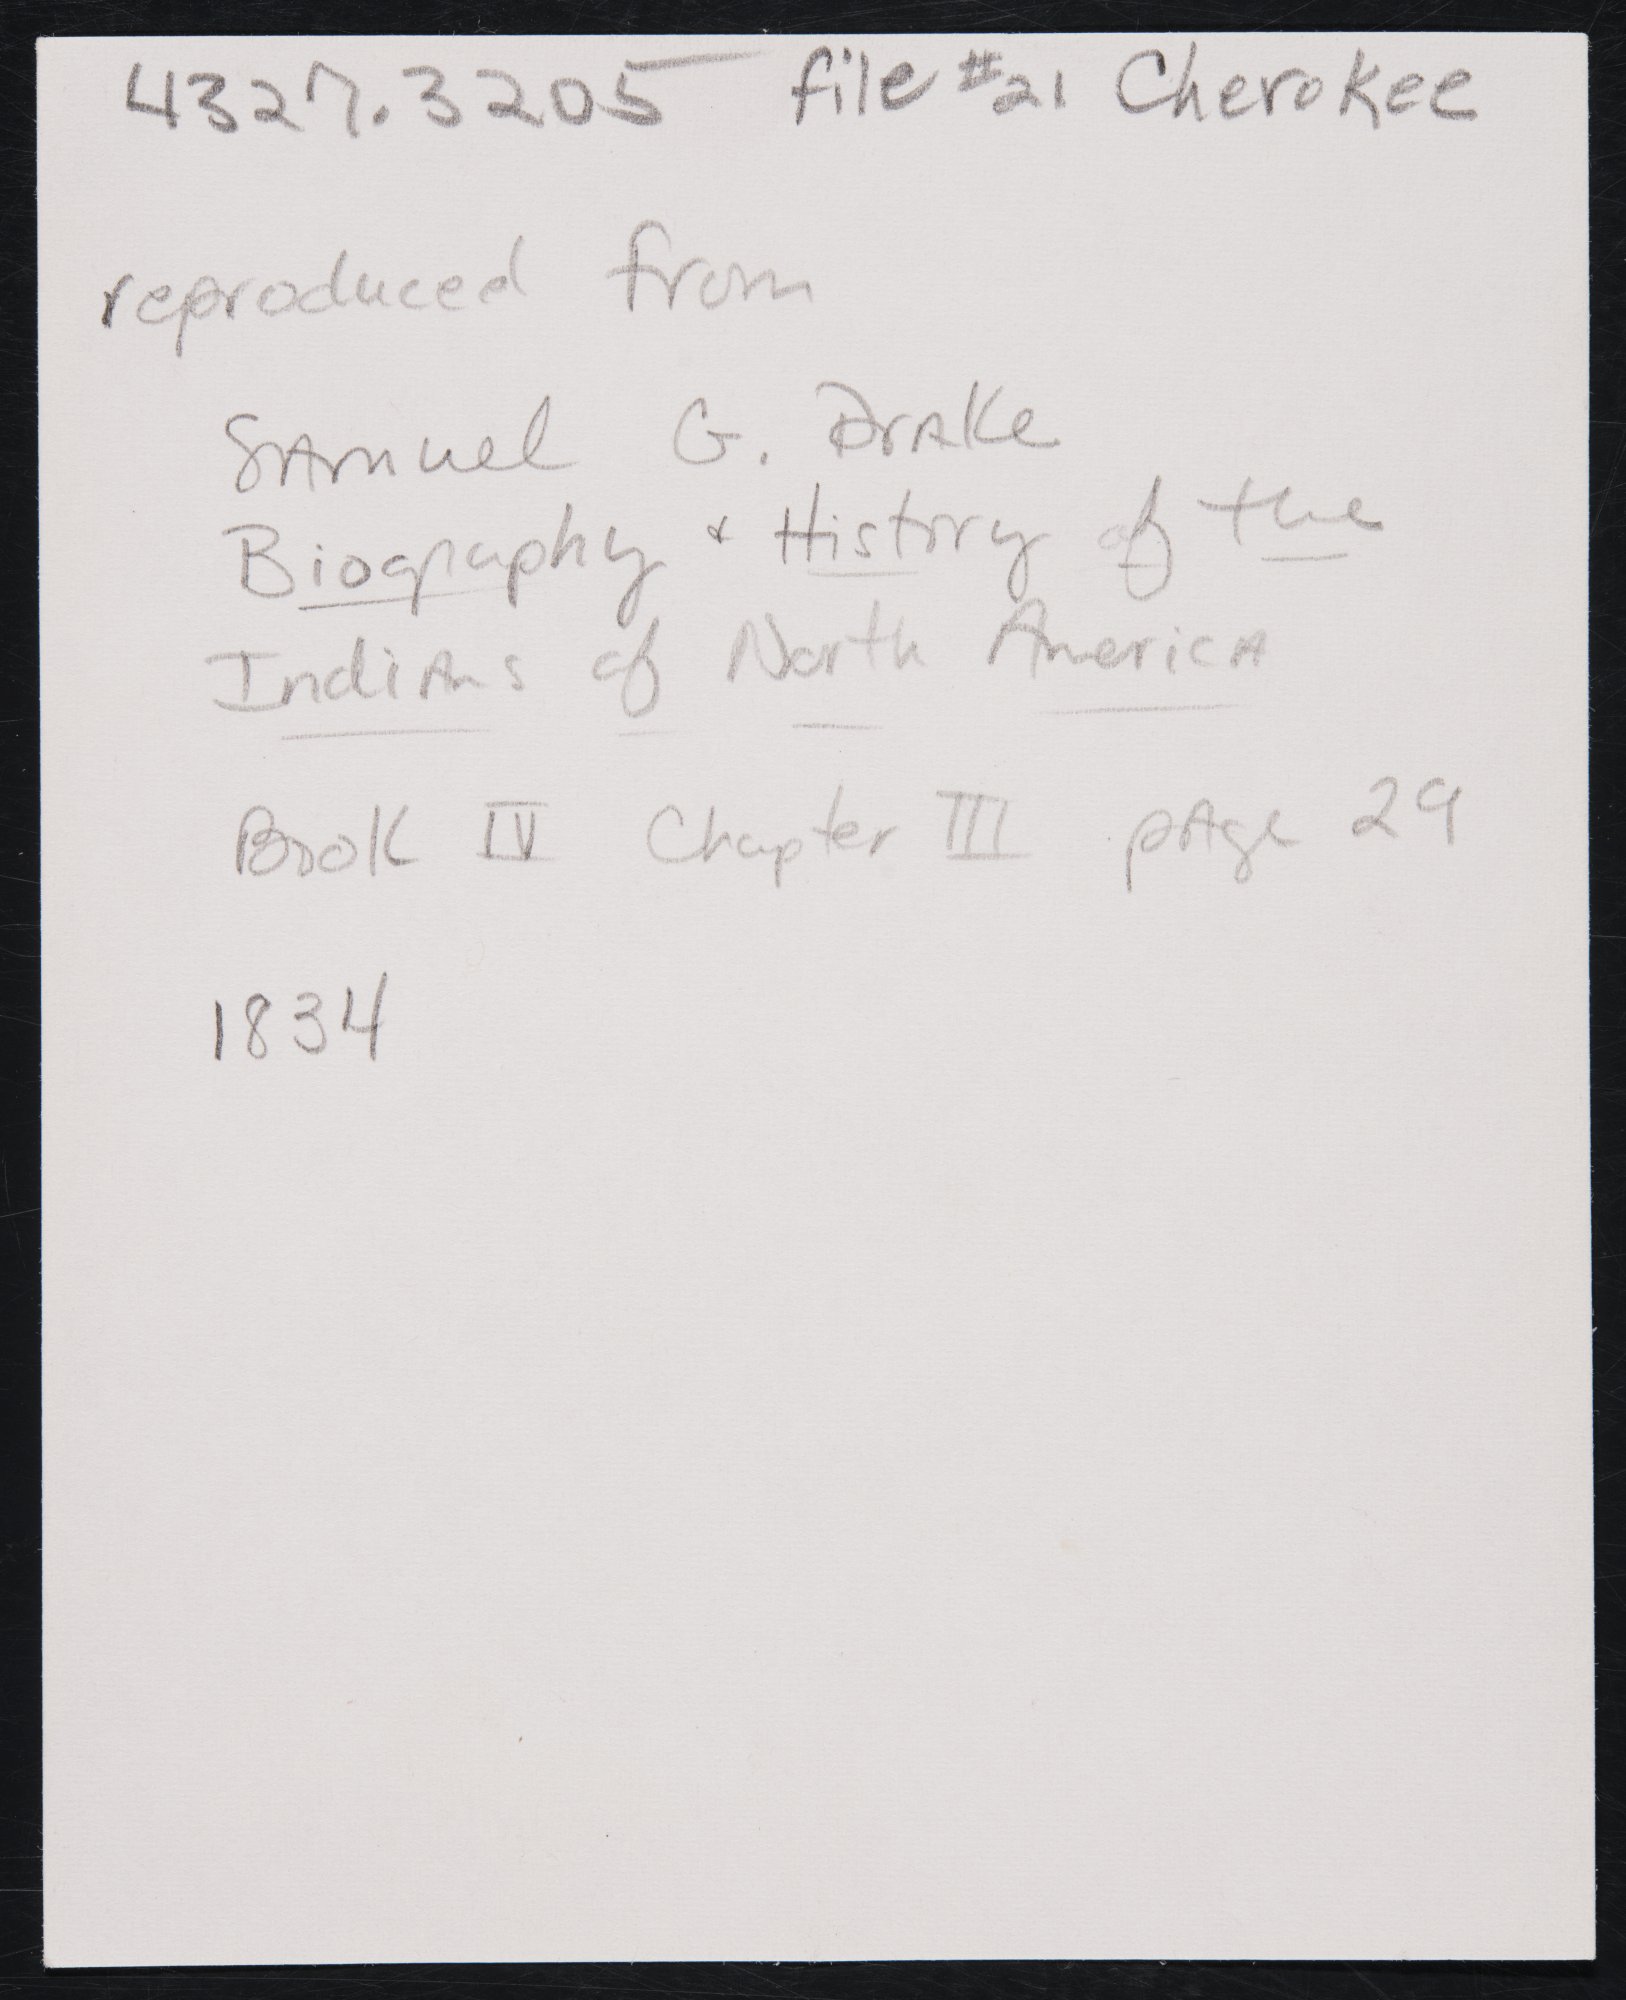 4327.3205 file #21 Cherokee
reproduced from
Samuel G. Drake
Biography & History of the
Indians of North America
Book IV Chapter III page 29
1834